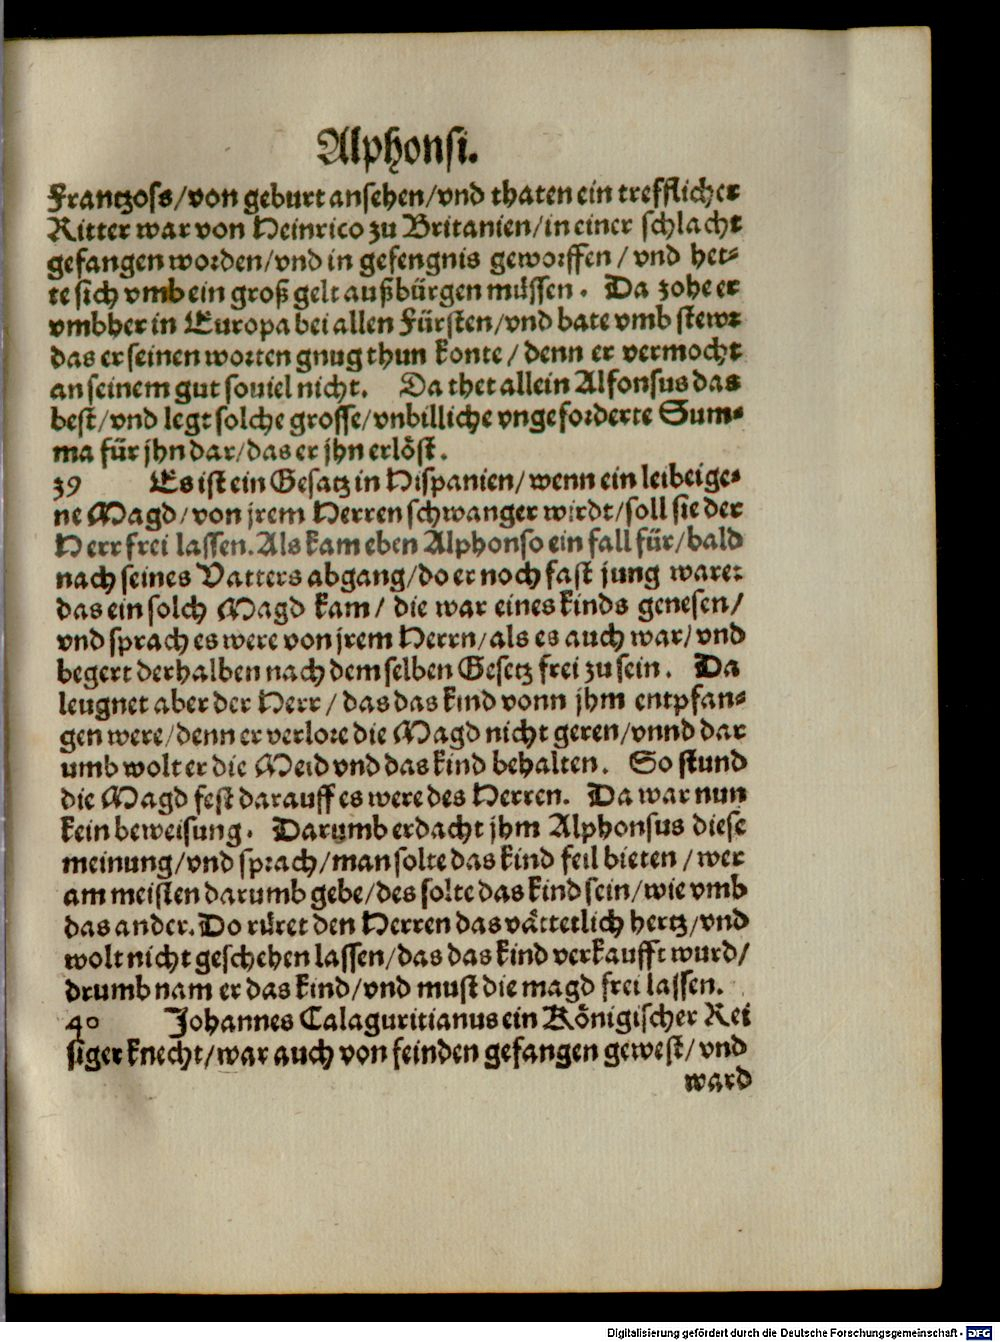 Alphonsi.
Frantzoss/von geburt ansehen/vnd thaten ein trefflicher
Ritter war von Heinrico zu Britanien/in einer schlacht
gefangen worden/vnd in gefengnis geworffen / vnd het-
te sich vmb ein groß gelt außbürgen müssen. Da zohe er
vmbher in Europa bei allen Fürsten/vnd bate vmb stewr
das er seinen worten gnug thun konte / denn er vermocht
an seinem gut souiel nicht. Da thet allein Alfonsus das
best/vnd legt solche grosse/vnbilliche vngeforderte Sum-
ma für jhn dar/das er jhn erlöst.
39 Es ist ein Gesatz in Hispanien/wenn ein leibeige-
ne Magd/von jrem Herren schwanger wirdt/soll sie der
Herr frei lassen. Als kam eben Alphonso ein fall für/bald
nach seines Vatters abgang/do er noch fast jung ware:
das ein solch Magd kam/ die war eines kinds genesen/
vnd sprach es were von jrem Herrn/als es auch war/vnd
begert derhalben nach dem selben Gesetz frei zu sein. Da
leugnet aber der Herr / das das kind vonn jhm entpfan-
gen were/denn er verlore die Magd nicht geren/vnnd dar
umb wolt er die Meid vnd das kind behalten. So stund
die Magd fest darauff es were des Herren. Da war nun
kein beweisung. Darumb erdacht jhm Alphonsus diese
meinung/vnd sprach/man solte das kind feil bieten /wer
am meisten darumb gebe/des solte das kind sein/wie vmb
das ander. Do rüret den Herren das vätterlich hertz/vnd
wolt nicht geschehen lassen/das das kind verkaufft wurd/
drumb nam er das kind/vnd must die magd frei lassen.
40 Johannes Calaguritianus ein Königischer Rei
siger knecht/war auch von feinden gefangen gewest/vnd
ward
Digitalisierung gefördert durch die Deutsche Forschungsgemeinschaft - DFG